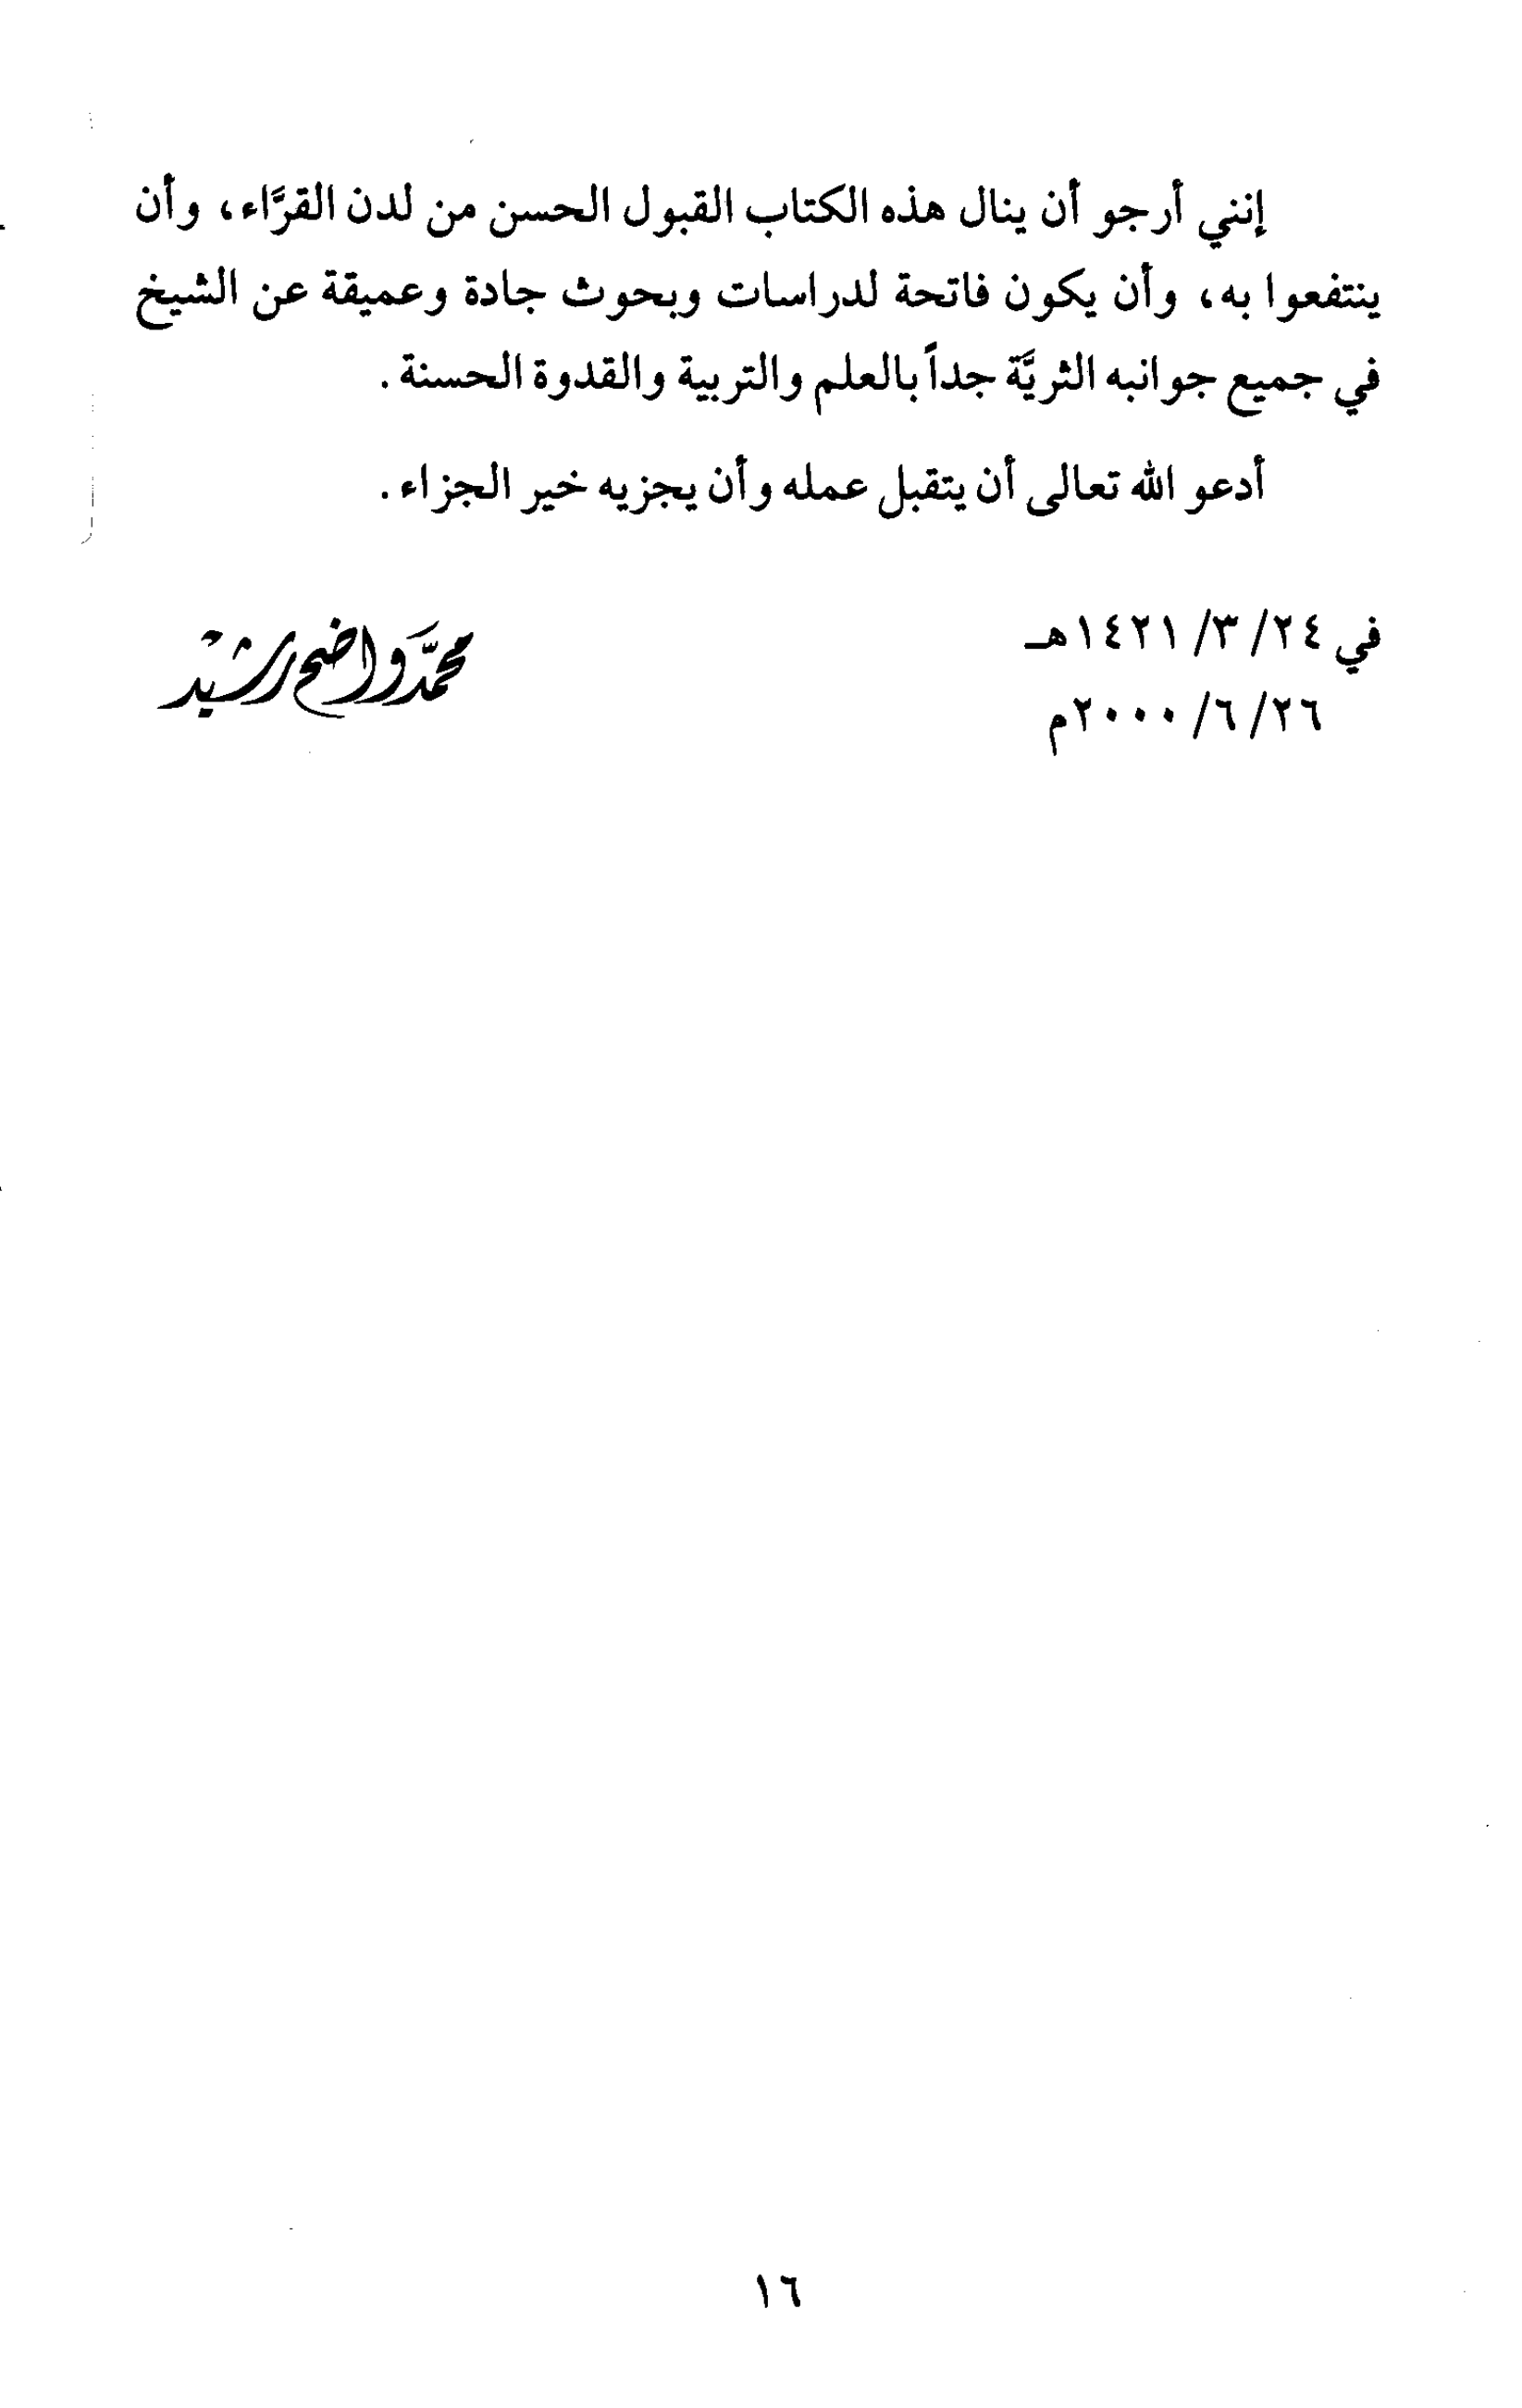 إنني أرجو أن ينال هذه الكتاب القبول الحسن من لدن القرَّاء، وأن
ينتفعوا به، وأن يكون فاتحة لدراسات وبحوث جادة وعميقة عن الشيخ
في جميع جوانبه الثريَّة جداً بالعلم والتربية والقدوة الحسنة.
أدعو الله تعالى أن يتقبل عمله وأن يجزيه خير الجزاء.
في ٢٤/ ٣/ ١٤٢١هـ
٢٦/ ٦/ ٢٠٠٠م
محمَّد واضح رشيد
١٦